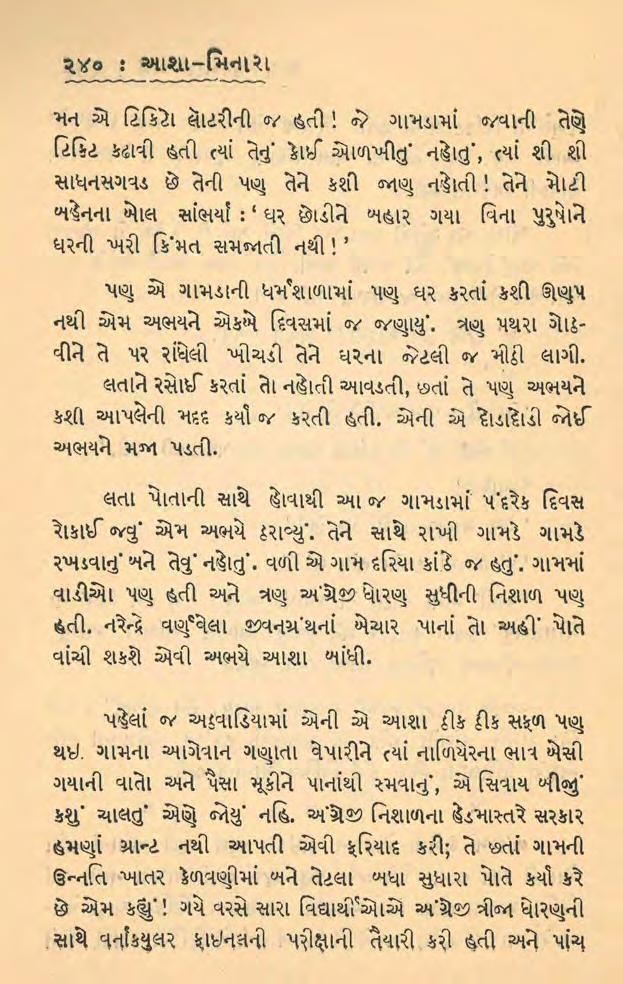 ૨૪૦ : આશા-મિનારા
મન એ ટિકિટો લૉટરીની જ હતી! જે ગામડામાં જવાની તેણે
ટિકિટ કઢાવી હતી ત્યાં તેનું કોઈ ઓળખીતું નહોતું, ત્યાં શી શી
સાધનસગવડ છે તેની પણ તેને કશી જાણ નહોતી! તેને મોટી
બહેનના બોલ સાંભર્યા : ‘ઘર છોડીને બહાર ગયા વિના પુરુષોને
ઘરની ખરી કિંમત સમજાતી નથી!’
પણ એ ગામડાની ધર્મશાળામાં પણ ઘર કરતાં કશી ઊણપ
નથી એમ અભયને એકબે દિવસમાં જ જણાયું. ત્રણ પથરા ગોઠ-
વીને તે પર રાંધેલી ખીચડી તેને ઘરના જેટલી જ મીઠી લાગી.
લતાને રસોઈ કરતાં તો નહોતી આવડતી, છતાં તે પણ અભયને
કશી આપલેની મદદ કર્યા જ કરતી હતી. એની એ દોડાદોડી જોઈ
અભયને મજા પડતી.
લતા પોતાની સાથે હોવાથી આ જ ગામડામાં પંદરેક દિવસ
રોકાઈ જવું એમ અભયે ઠરાવ્યું. તેને સાથે રાખી ગામડે ગામડે
રખડવાનું બને તેવું નહોતું. વળી એ ગામ દરિયા કાંઠે જ હતું. ગામમાં
વાડીઓ પણ હતી અને ત્રણ અંગ્રેજી ધોરણ સુધીની નિશાળ પણ
હતી. નરેન્દ્રે વર્ણવેલા જીવનગ્રંથનાં બેચાર પાનાં તો અહીં પોતે
વાંચી શકશે એવી અભયે આશા બાંધી.
પહેલાં જ અઠવાડિયામાં એની એ આશા ઠીક ઠીક સફળ પણ
થઇ. ગામના આગેવાન ગણાતા વેપારીને ત્યાં નાળિયેરના ભાવ બેસી
ગયાની વાતો અને પૈસા મૂકીને પાનાંથી રમવાનું, એ સિવાય બીજું
કશું ચાલતું એણે જોયું નહિ. અંગ્રેજી નિશાળના હેડમાસ્તરે સરકાર
હમણાં ગ્રાન્ટ નથી આપતી એવી ફરિયાદ કરી; તે છતાં ગામની
ઉન્નતિ ખાતર કેળવણીમાં બને તેટલા બધા સુધારા પોતે કર્યા કરે
છે એમ કહ્યું! ગયે વરસે સારા વિદ્યાર્થીઓએ અંગ્રેજી ત્રીજા ધોરણની
સાથે વર્નાક્યુલર ફાઇનલની પરીક્ષાની તૈયારી કરી હતી અને પાંચ